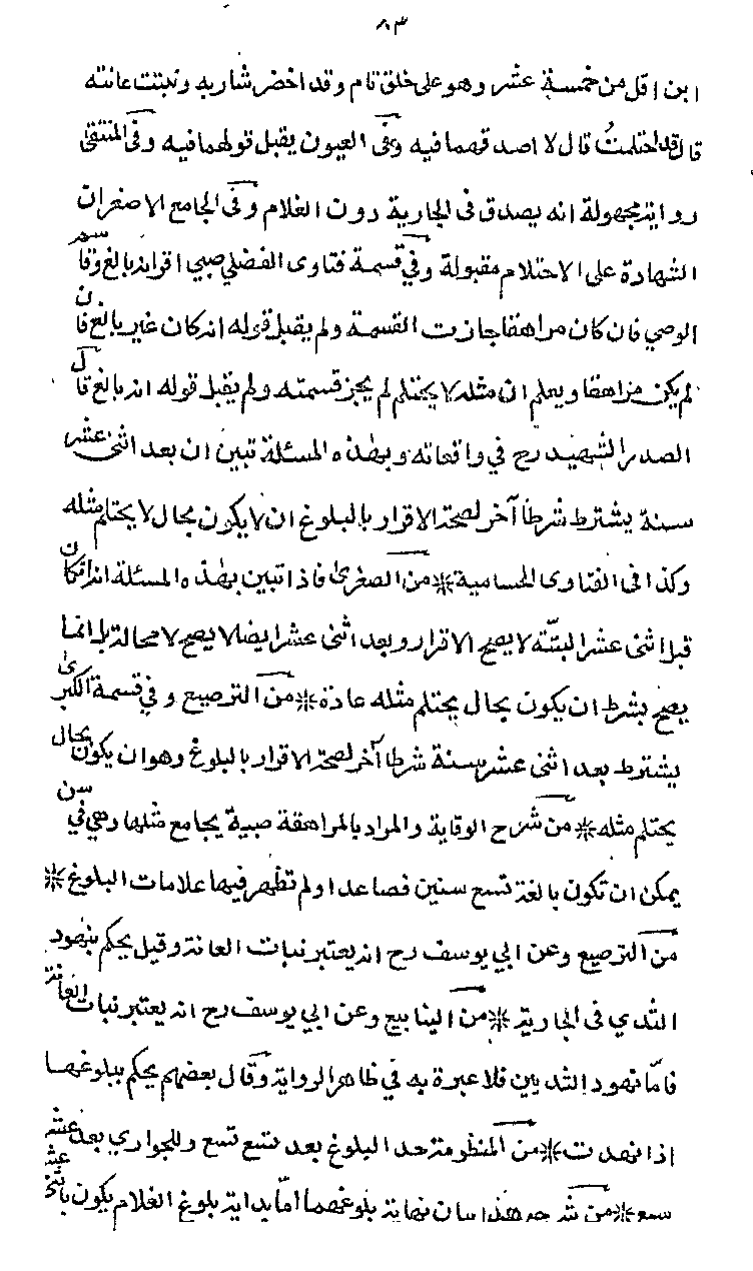 ٨٣
ابن اقل من خمسة عشر وهو على خلق تام وقد اخضر شاربه ونبتت عانته
قال قد احتلمتُ قال لا اصدقهما فيه وفى العيون يقبل قولهما فيه وفى المنتقى
رواية مجهولة انه يصدق فى الجارية دون الغلام وفى الجامع الاصغر ان
الشهادة على الاحتلام مقبولة وفي قسمة فتاوى الفضلي صبي اقر انه بالغ وقاسم
الوصي فان كان مراهقا جازت القسمة ولم يقبل قوله انه كان غير بالغ فان
لم يكن مراهقا ويعلم ان مثله لا يحتلم لم يجز قسمته ولم يقبل قوله انه بالغ قال
الصدر الشهيد رح في واقعاته وبهذه المسئلة تبين ان بعد اثنى عشر
سنة يشترط شرطا آخر لصحة الاقرار بالبلوغ ان لا يكون بحال لا يحتلم مثله
وكذا فى الفتاوى الحسامية * من الصغرى فاذا تبين بهذه المسئلة انه ان كان
قبل اثنى عشر البتّة لا يصح الاقرار وبعد اثنى عشر ايضا لا يصح لا محالة بل انما
يصح بشرط ان يكون بحال يحتلم مثله عادة * من الترصيع وفي قسمة الكبرى
يشترط بعد اثنى عشر سنة شرطا آخر لصحة الاقرار بالبلوغ وهو ان يكون بحال
يحتلم مثله * من شرح الوقاية والمراد بالمراهقة صبية يجامع مثلها وهي في سن
يمكن ان تكون بالغة تسع سنين فصاعدا ولم تظهر فيها علامات البلوغ *
من الترصيع وعن ابي يوسف رح انه يعتبر نبات العانة وقيل يحكم بنهود
الثدي فى الجارية * من الينابيع وعن ابي يوسف رح انه يعتبر نبات العانة
فامّا نهود الثديين فلا عبرة به في ظاهر الرواية وقال بعضهم يحكم ببلوغها
اذا نهدت * من المنظومة حد البلوغ بعد تسع تسع وللجواري بعد عشر
سبع * من شرحه هذا بيان نهاية بلوغهما امّا بداية بلوغ الغلام يكون باثنى عشر